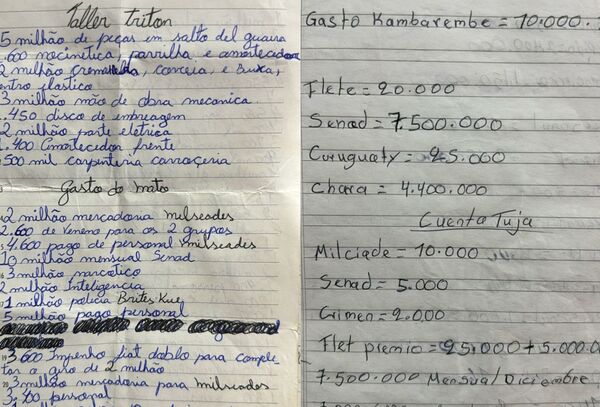 Taller triton
5 milhão de peças em salto del guaira
.600 nocinetica, parrilha e amortecedor
2 milhão cremalha, correia, e Buxa,
entro plastico
3 milhão mão de obra mecanica.
1.450 disco de embreagem
2 milhão parte eletrica
1.400 Amortecedor frente
500 mil carpinteria carroçeria
Gasto do mato
2 milhão mercadoria milseades
2.600 de veneno para os 2 grupos
4.600 pago de personal milseades
10 milhão mensual Senad
3 milhão narcotico
2 milhão Inteligencia
1 milhão policia Brites Kue
5 melhão pago personal
3600 Impenho fiat doblo para comple-
tar a giro de 2 milhão
3 milhão mercadoria para milseades
personal
Gasto Kambarembe = 10.000.
Flete = 20.000
Senad = 7.500.000
Curuguaty = 25.000
Chara = 4.400.000
Cuenta Tuja
Milciade = 10.000
Senad = 5.000
Crimen = 2.000
Flet premio = 25.000 + 5.000.0
7.500.000 Mensual Diciembre